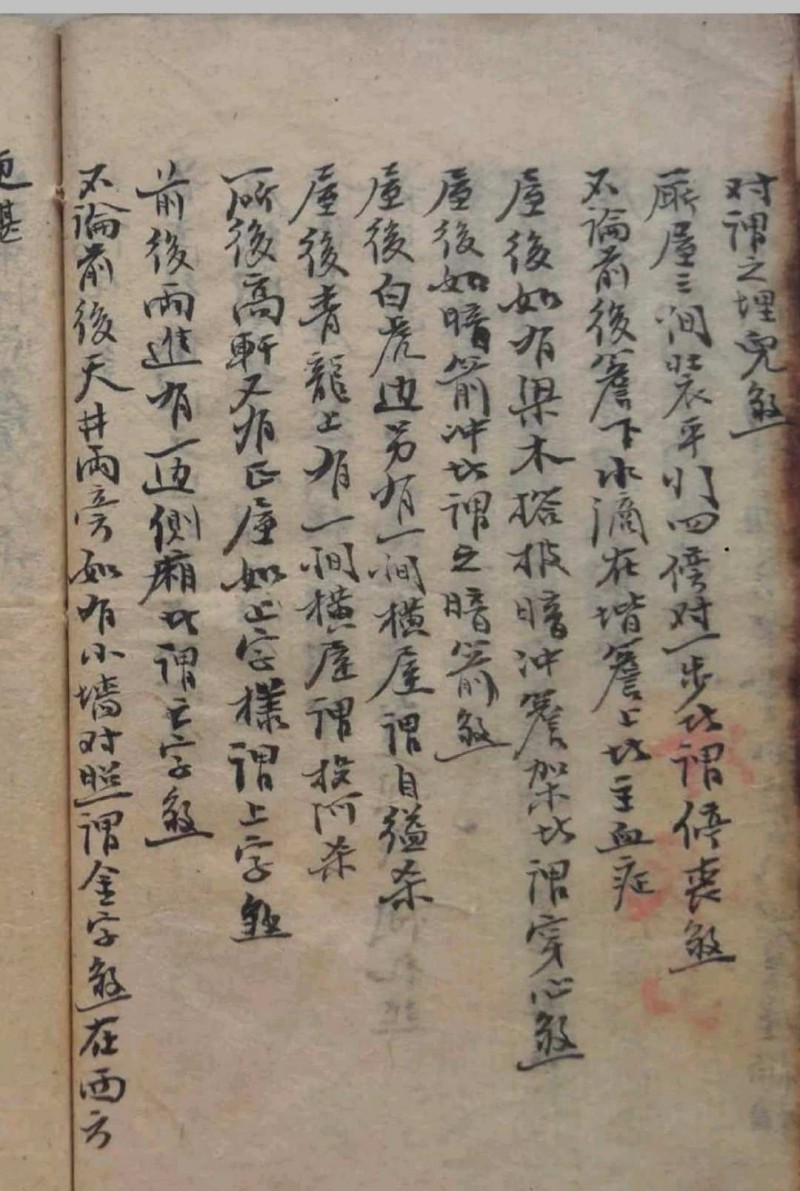 对谓之埋兒煞
厫屋三间装平门四傍对一步此谓停丧煞
不論前後簷下水滴在堦簷上此主血症
屋後如有梁木搭披暗冲簷架此谓穿心煞
屋後如暗箭冲此谓之暗箭煞
屋後白虎边另有一间横屋谓自缢杀
屋後青龍上有一间横屋谓投河杀
所後高軒又有正屋如上字樣谓上字煞
前後兩進有一边侧廂此谓亡字煞
不論前後天井兩旁如有小墙对照谓金字煞在西方